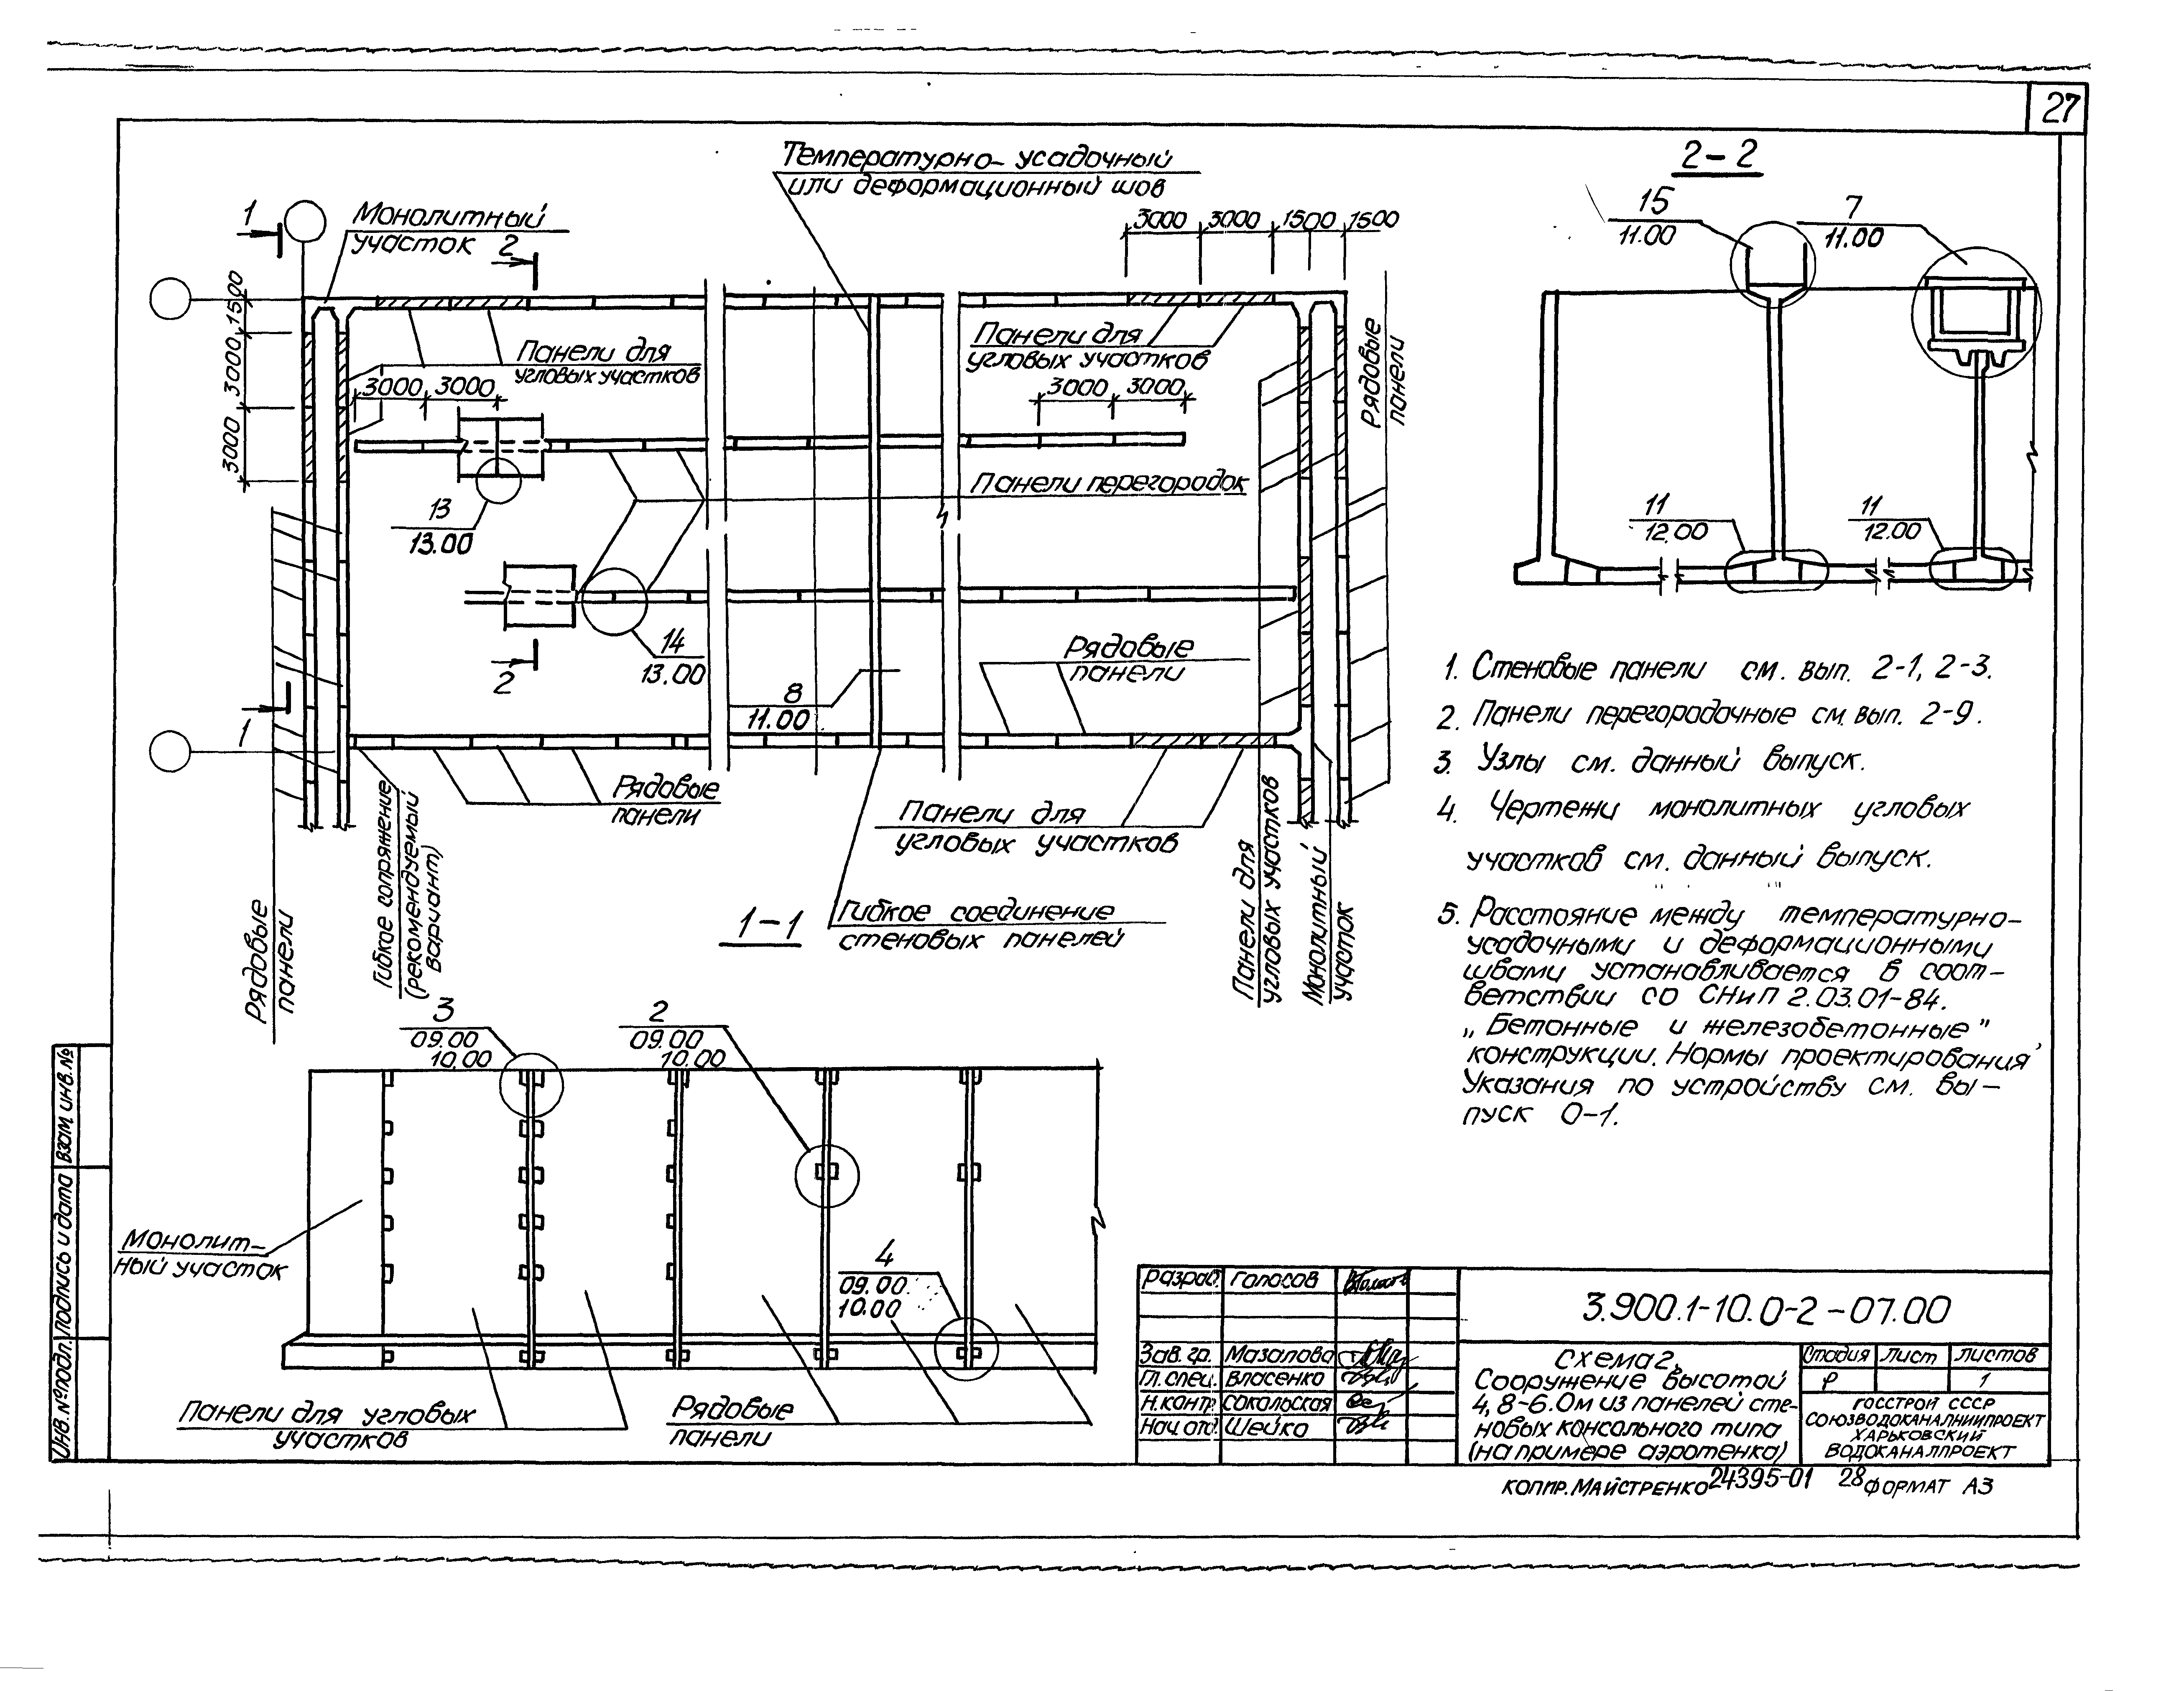 27
Температурно-усадочный
или деформационный шов
2-2
1
Монолитный
участок
2
3000 3000 1500 1500
15
11.00
7
11.00
1500
3000
3000
Панели для
угловых участков
3000 3000
Панели для
угловых участков
3000 3000
Рядовые
панели
13
13.00
Панели перегородок
11
12.00
11
12.00
14
13.00
2
8
11.00
Рядовые
панели
1
Рядовые
панели
Панели для
угловых участков
Гибкое сопряжение
(рекомендуемый
вариант)
Рядовые
панели
Гибкое соединение
стеновых панелей
Панели для
угловых участков
Монолитный
участок
1. Стеновые панели см. вып. 2-1, 2-3.
2. Панели перегородочные см. вып. 2-9.
3. Узлы см. данный выпуск.
4. Чертежи монолитных угловых
участков см. данный выпуск.
5. Расстояние между температурно-
усадочными и деформационными
швами устанавливается в соот-
ветствии со СНиП 2.03.01-84.
„Бетонные и железобетонные"
конструкции. Нормы проектирования
Указания по устройству см. вы-
пуск 0-1.
1-1
3
09.00
10.00
2
09.00
10.00
4
09.00
10.00
Монолит-
ный участок
Панели для угловых
участков
Рядовые
панели
Взам инв.№
Подпись и дата
Инв.№подл.
Разраб. Голосов
Зав.гр. Мазалова
Гл.спец. Власенко
Н.контр Сокольская
Нач.отд. Шейко
3.900.1-10.0-2-07.00
Схема 2.
Сооружение высотой
4,8-6.0м из панелей сте-
новых консольного типа
(на примере аэротенка)
Стадия Лист Листов
Р 1
ГОССТРОЙ СССР
СОЮЗВОДОКАНАЛНИИПРОЕКТ
ХАРЬКОВСКИЙ
ВОДОКАНАЛПРОЕКТ
копир. Майстренко 24395-01 28 формат А3